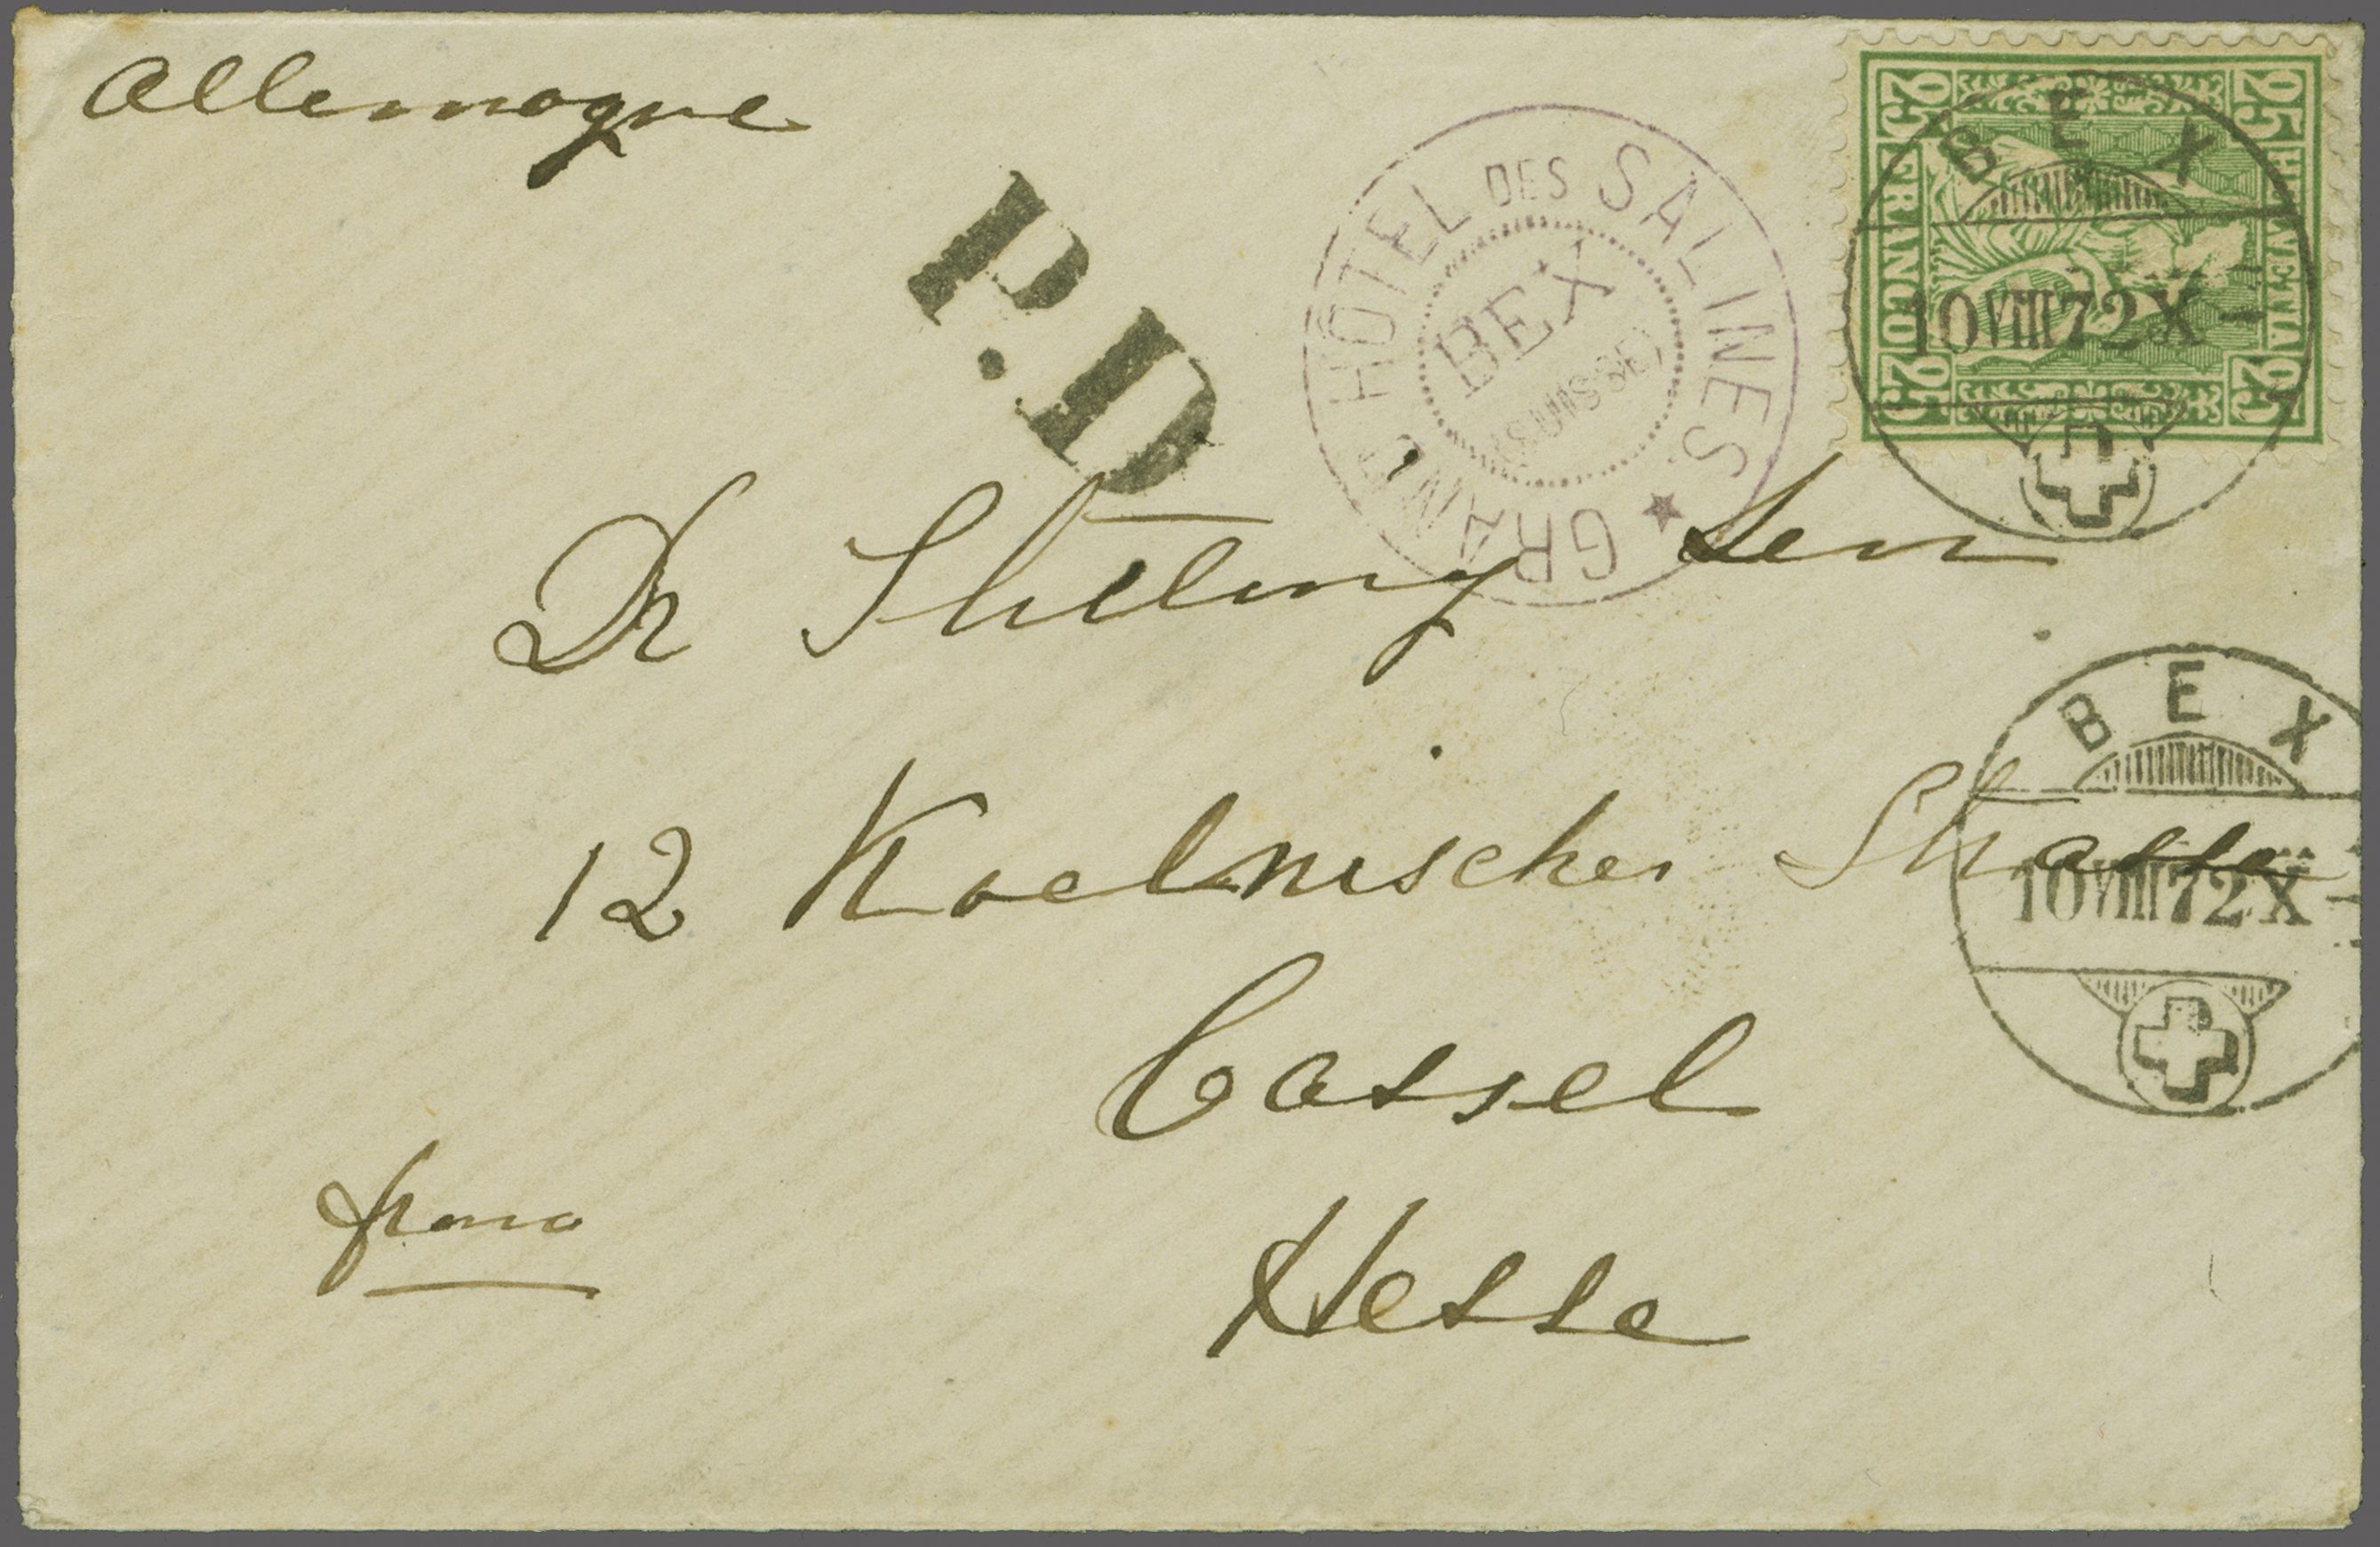 Allemagne
P.D
GRAND HÔTEL DES SALINES
BEX
(SUISSE)
25 HELVETIA 25
25 FRANCO 25
BEX
10 VIII 72 X
Dr Sen
12 Koelnischer Strasse
BEX
10 VIII 72 X
Cassel
Hesse